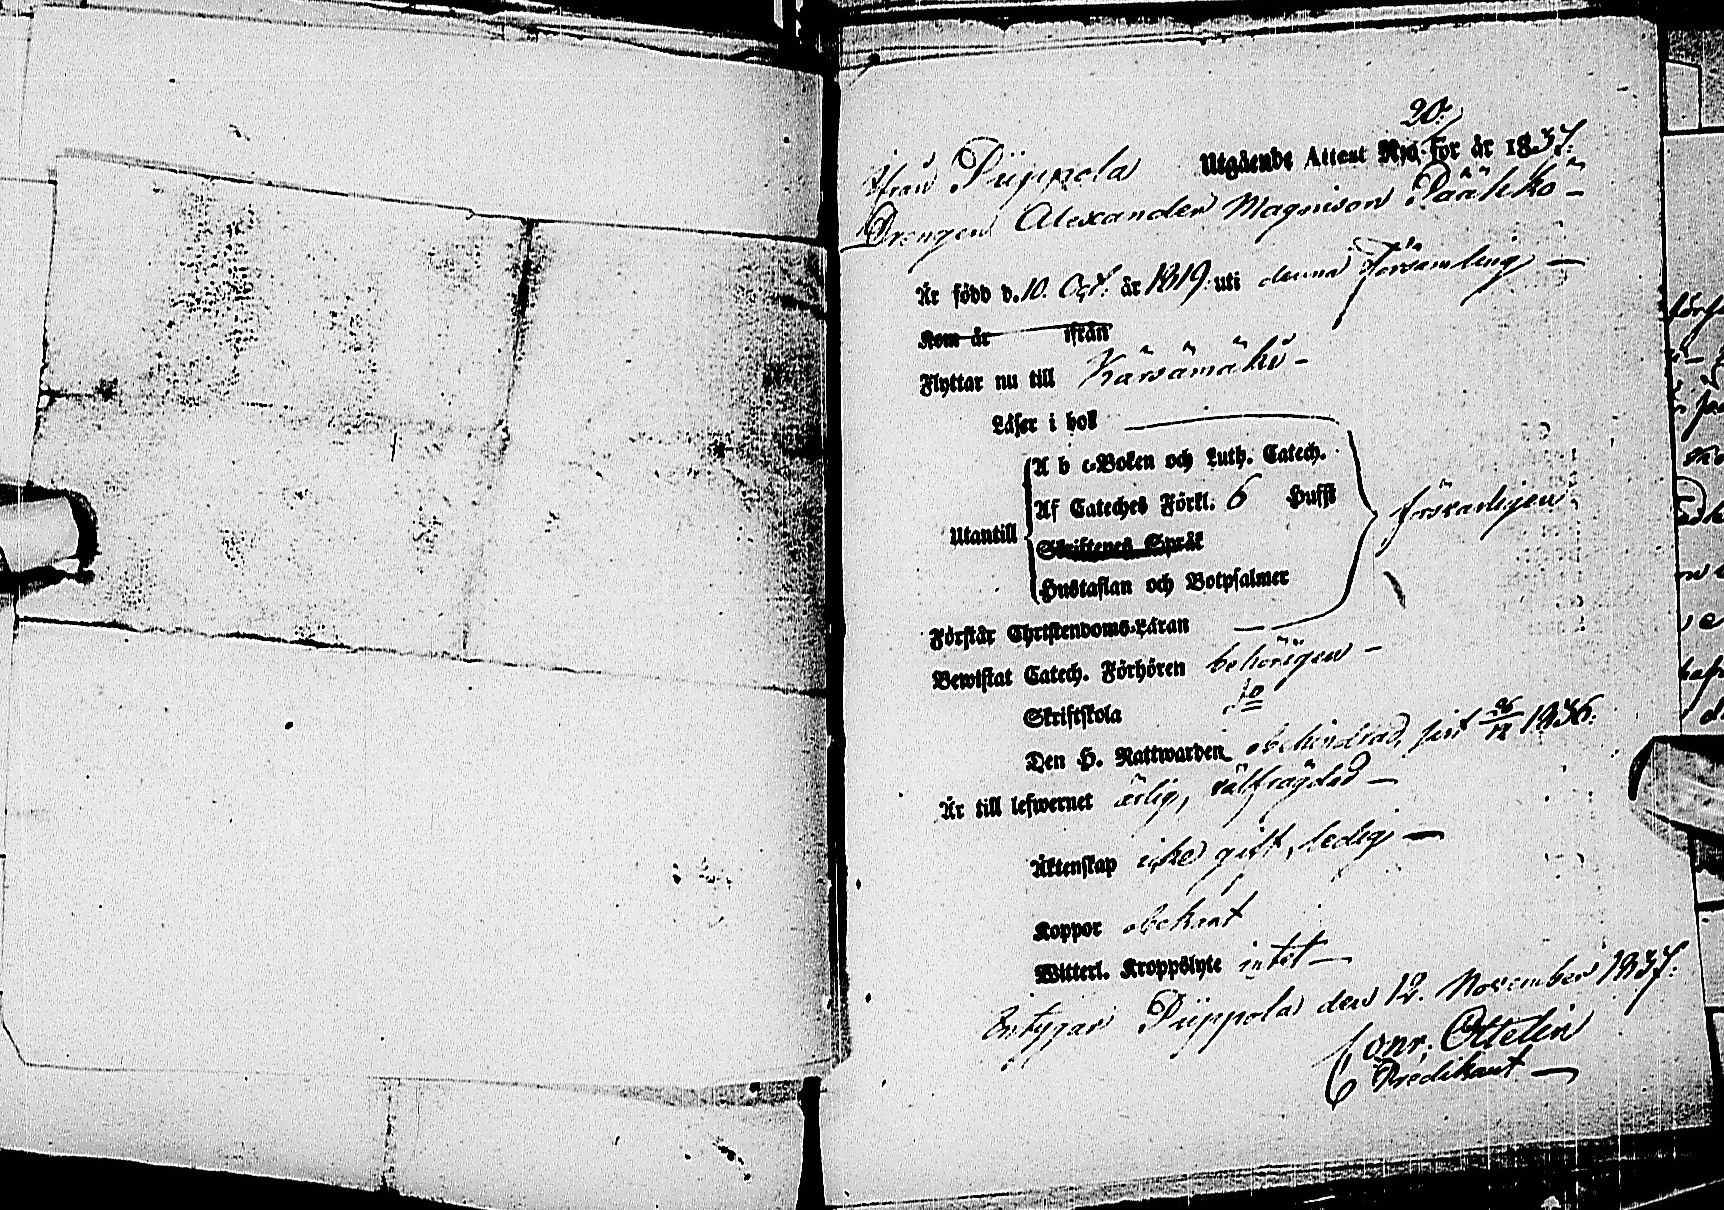 20.
Ifrån Piippola Utgående Attest N:o för år 1837.
Drengen Alexander Magnison Päähkö –
Är född d. 10. Oct. år 1819. uti denna Församling –
Kom år ifrån
Flyttar nu till Kärsämäki –
Läser i bok
A b c-Boken och Luth. Catech.
Af Cateches Förkl. 6 Hufst försvarligen
Utantill
Skriftenes Språk
Hustaflan och Botpsalmer
Förstår Christendoms-Läran –
Bewistat Catech. Förhören behörigen –
Skriftskola do
Den H. Nattwarden obehindrad, sist 26/12 1836.
Är till lefwernet ärlig, välfrägdad –
Äktenskap icke gift, ledig –
Koppor obekant
Witterl. Kroppslyte intet –
Intygar Piippola den 12. November 1837.
Conr. Ottelin
Predikant –